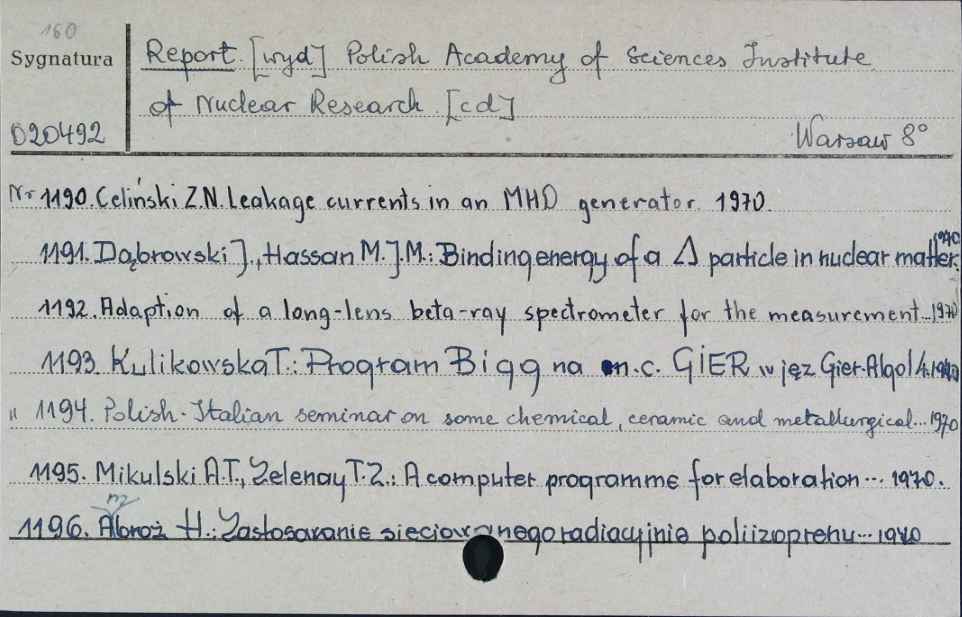 160
Sygnatura
Report [wyd] Polish Academy of Sciences Institute
of Nuclear Research. [cd]
D20492
Warsaw 8°
Nr 1190. Celiński Z.N. Leakage currents in an MHD generator. 1970.
1191. Dąbrowski J., Hassan M.J.M.: Binding energy of a Δ particle in nuclear matter. 1970
1192. Adaption of a long-lens beta-ray spectrometer for the measurement... 1970
1193. Kulikowska T.: Program Bigg na m.c. GIER w jęz Gier-Algol 4. 1970
" 1194. Polish-Italian seminar on some chemical, ceramic and metallurgical... 1970
1195. Mikulski A.T., Zelenay T.Z.: A computer programme for elaboration... 1970.
1196. Abroż H.: Zastosowanie sieciowanego radiacyjnie poliizoprenu... 1970